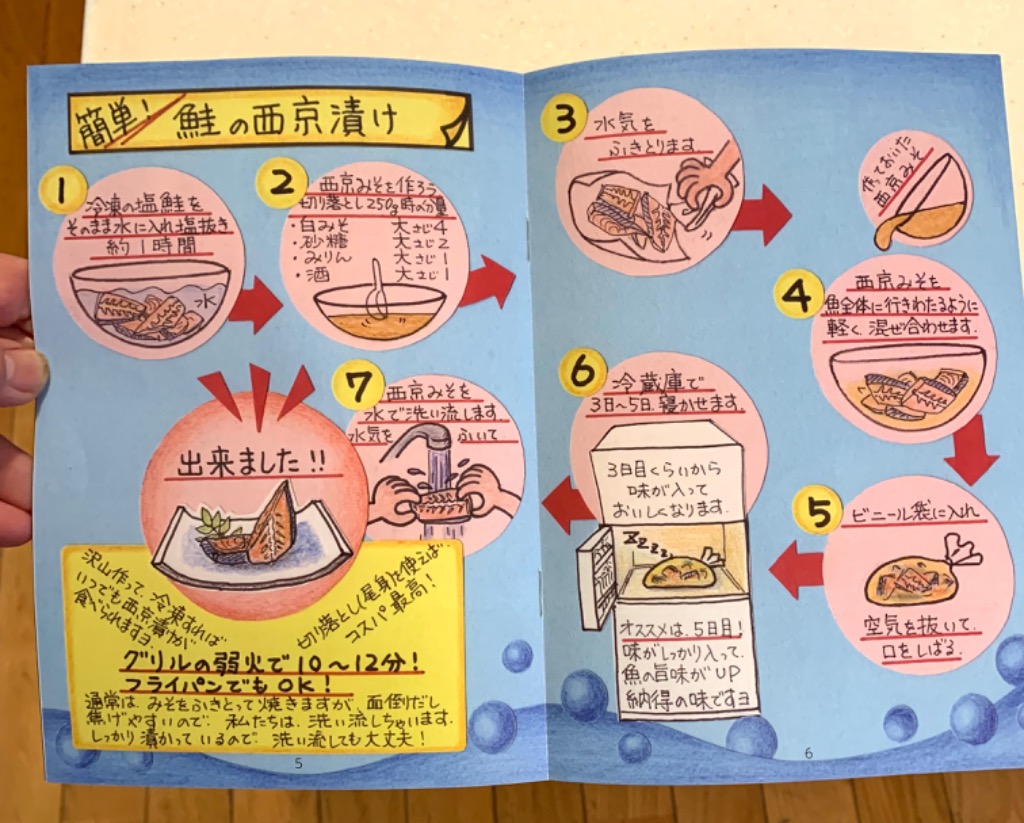 簡単! 鮭の西京漬け
1
冷凍の塩鮭を
そのまま水に入れ塩抜き
約1時間
水
2
西京みそを作ろう
切り落とし250g時の分量
・白みそ 大さじ4
・砂糖 大さじ2
・みりん 大さじ1
・酒 大さじ1
3
水気を
ふきとります
作っておいた
西京みそ
4
西京みそを
魚全体に行きわたるように
軽く、混ぜ合わせます.
5
ビニール袋に入れ
空気を抜いて、
口をしばる.
6
冷蔵庫で
3日~5日、寝かせます.
3日目くらいから
味が入って
おいしくなります.
ZZZZ
オススメは、5日目!
味がしっかり入って、
魚の旨味がUP
納得の味ですヨ
7
西京みそを
水で洗い流します
水気を ふいて
出来ました!!
沢山作って、冷凍すれば
いつでも西京漬が
食べられますヨ
切り落とし(尾身)を使えば‥
コスパ最高!
グリルの弱火で10~12分!
フライパンでもOK!
通常は、みそをふきとって焼きますが、面倒だし
焦げやすいので、私たちは、洗い流しちゃいます.
しっかり漬かっているので、洗い流しても大丈夫!
5
6